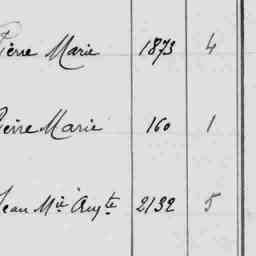 Pierre Marie 1873 4
Pierre Marie 160 1
Jean Mie Augte 2132 5